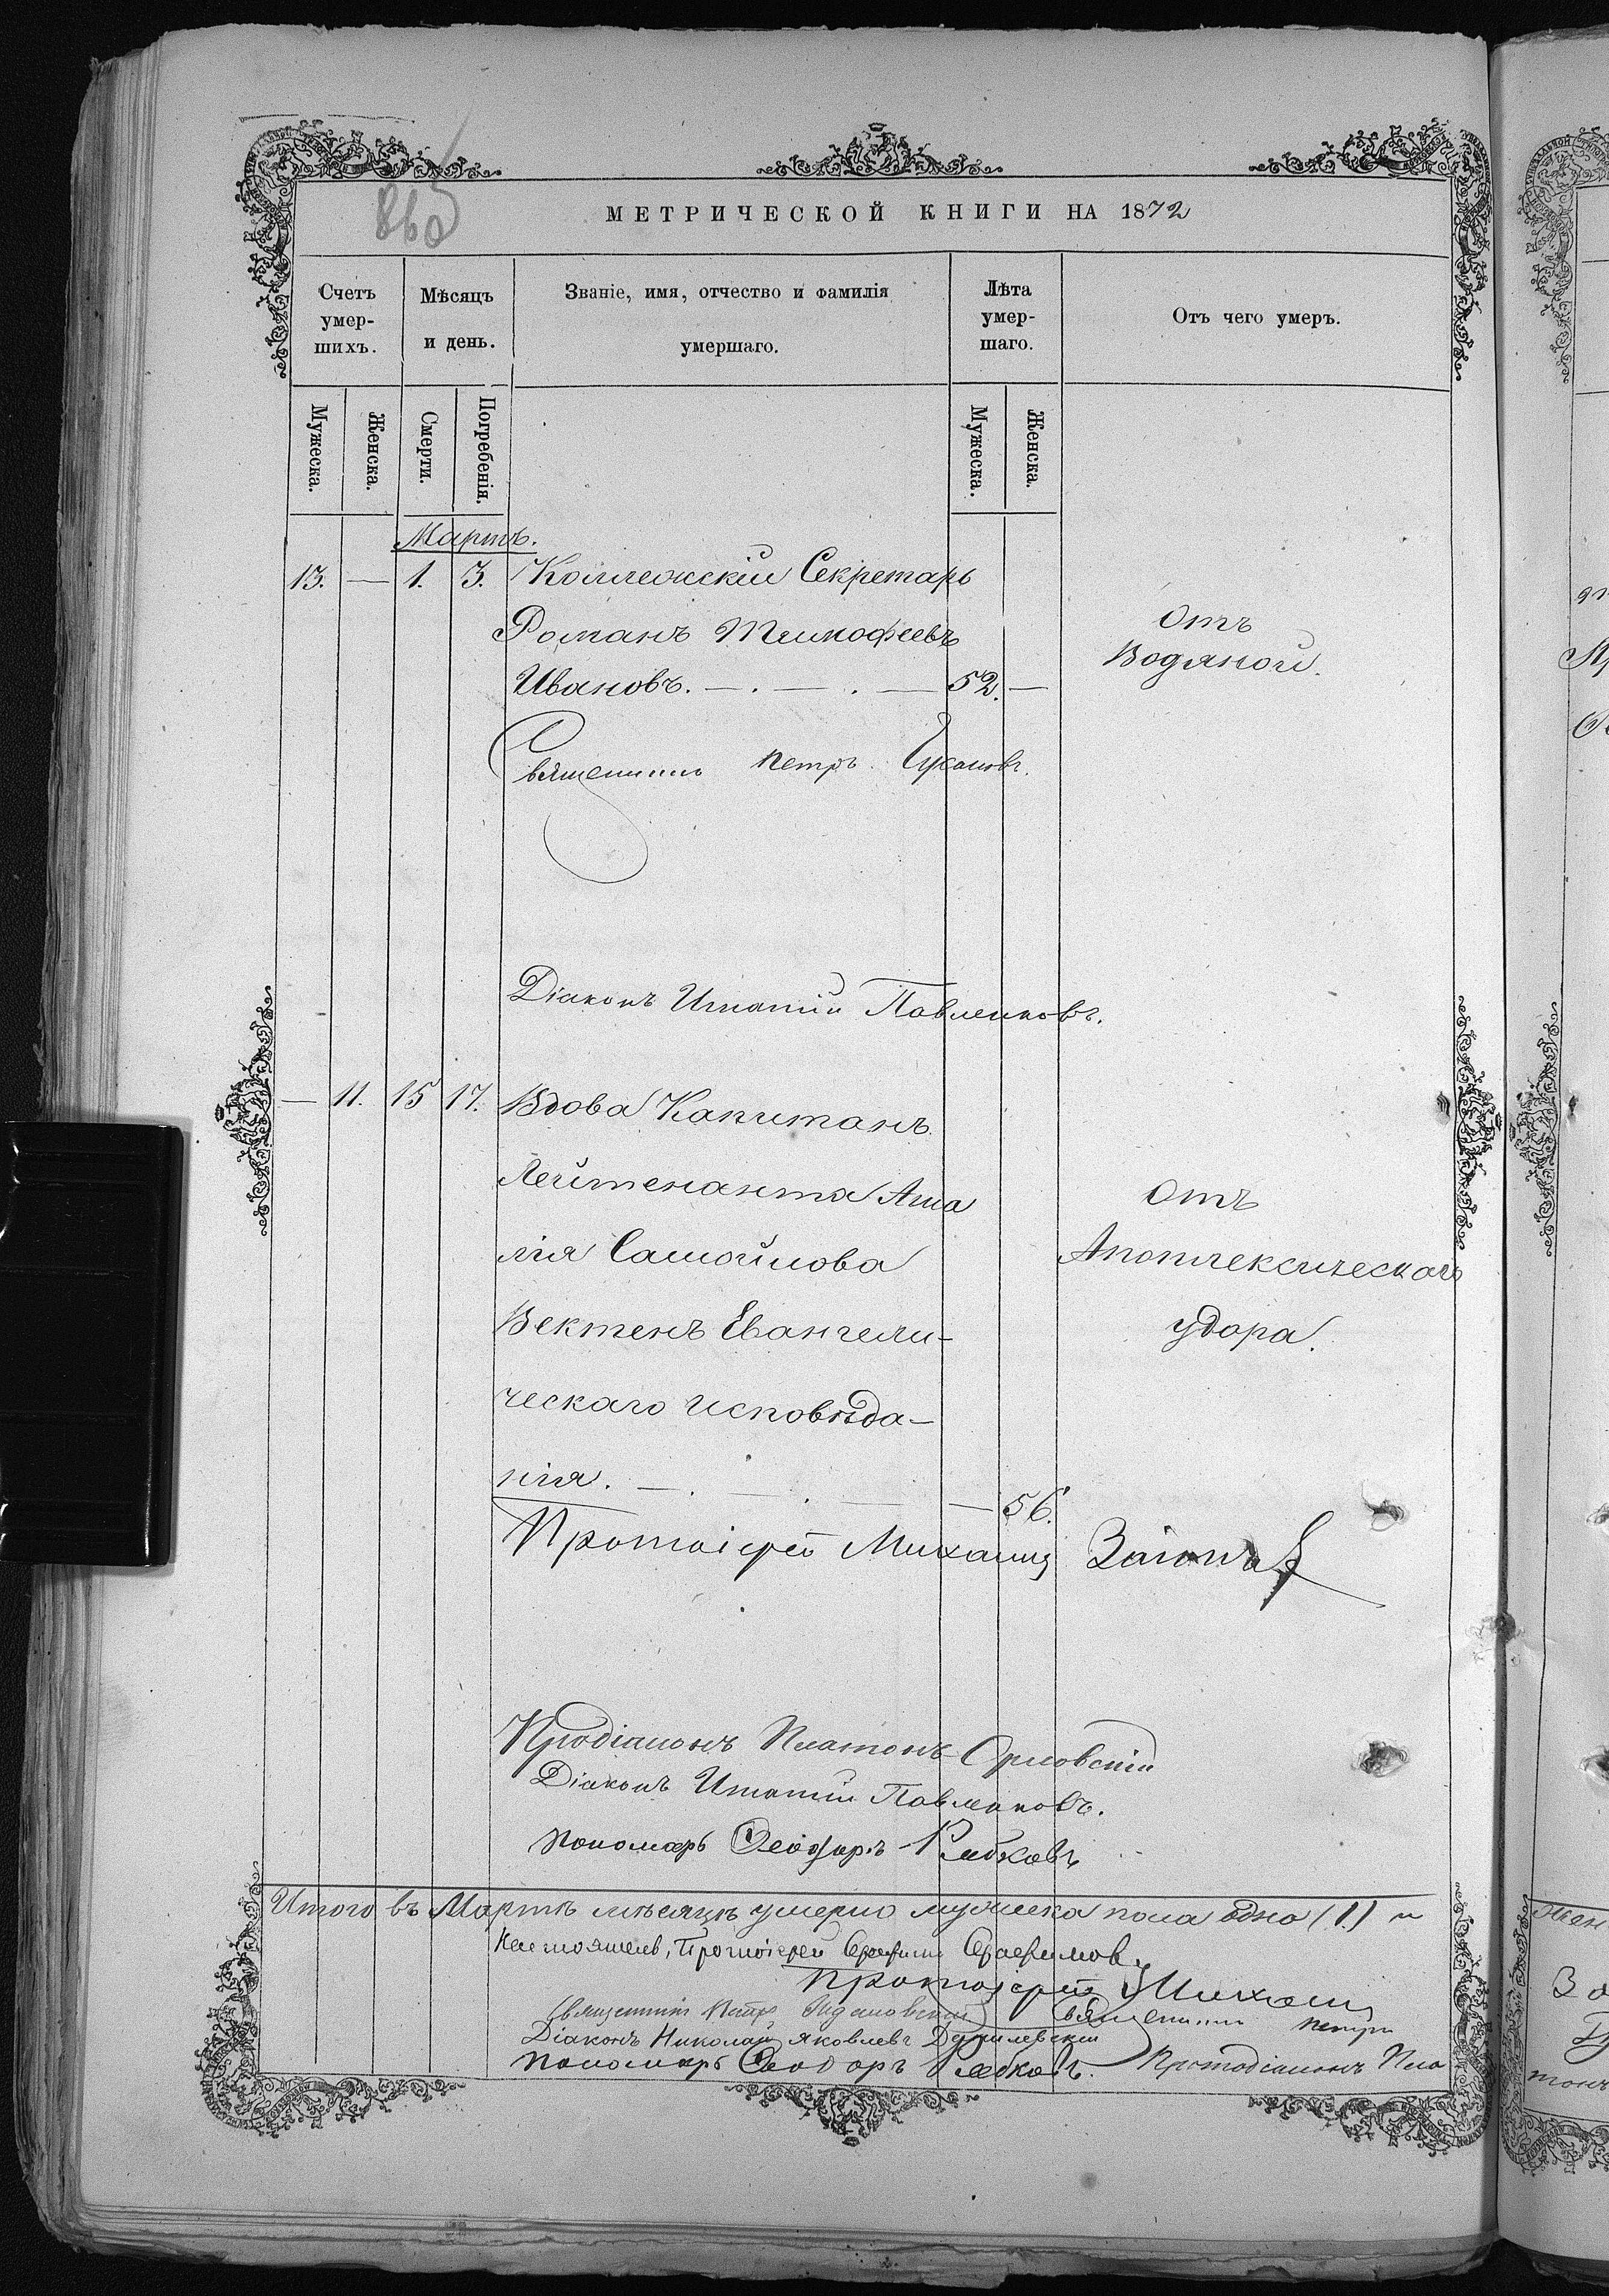 МЕТРИЧЕСКОЙ КНИГИ НА 1872
Счетъ умер-шихъ.
Мѣсяцъ и день.
Званіе, имя, отчество и фамилія умершаго.
Лѣта умер-шаго.
Отъ чего умеръ.
Мужеска. Женска. Смерти. Погребенія. Мужеска. Женска.
Мартъ.
13. — 1. 3. Коллежскій Секретарь
Романъ Тимофеевъ
Ивановъ. — . — . — 52. —
Отъ
Водяной.
Священникъ Петръ
Діаконъ Игнатій Павленковъ.
— 11. 15 17. Вдова Капитанъ
Лейтенанта Ама
лія Самойлова
Вектенъ Евангели-
ческаго исповѣда-
нія. — . — . — — 56.
Отъ
Апоплексическаго
удара.
Протоіерей Михаилъ
Продіаконъ Платонъ Орловскій
Діаконъ Игнатій Павленковъ.
Пономарь Ѳеодоръ Рябковъ
Итого въ Мартѣ мѣсяцѣ умерло мужеска пола одно (1.) и
Настоятель, Протоіерей Серафимъ Серафимов.
Протоіерей Михаилъ
Священникъ Петръ
Священникъ Петръ
Діаконъ Николай Яковлевъ Данилевскій
Пономарь Ѳеодоръ Рябковъ. Протодіаконъ Пла